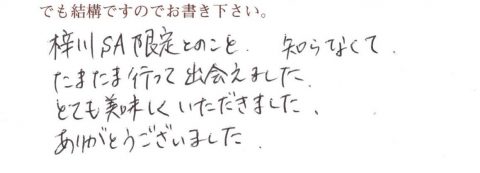 でも結構ですのでお書き下さい。
梓川SA限定とのこと、知らなくて、
たまたま行って出会えました、
とても美味しくいただきました、
ありがとうございました、